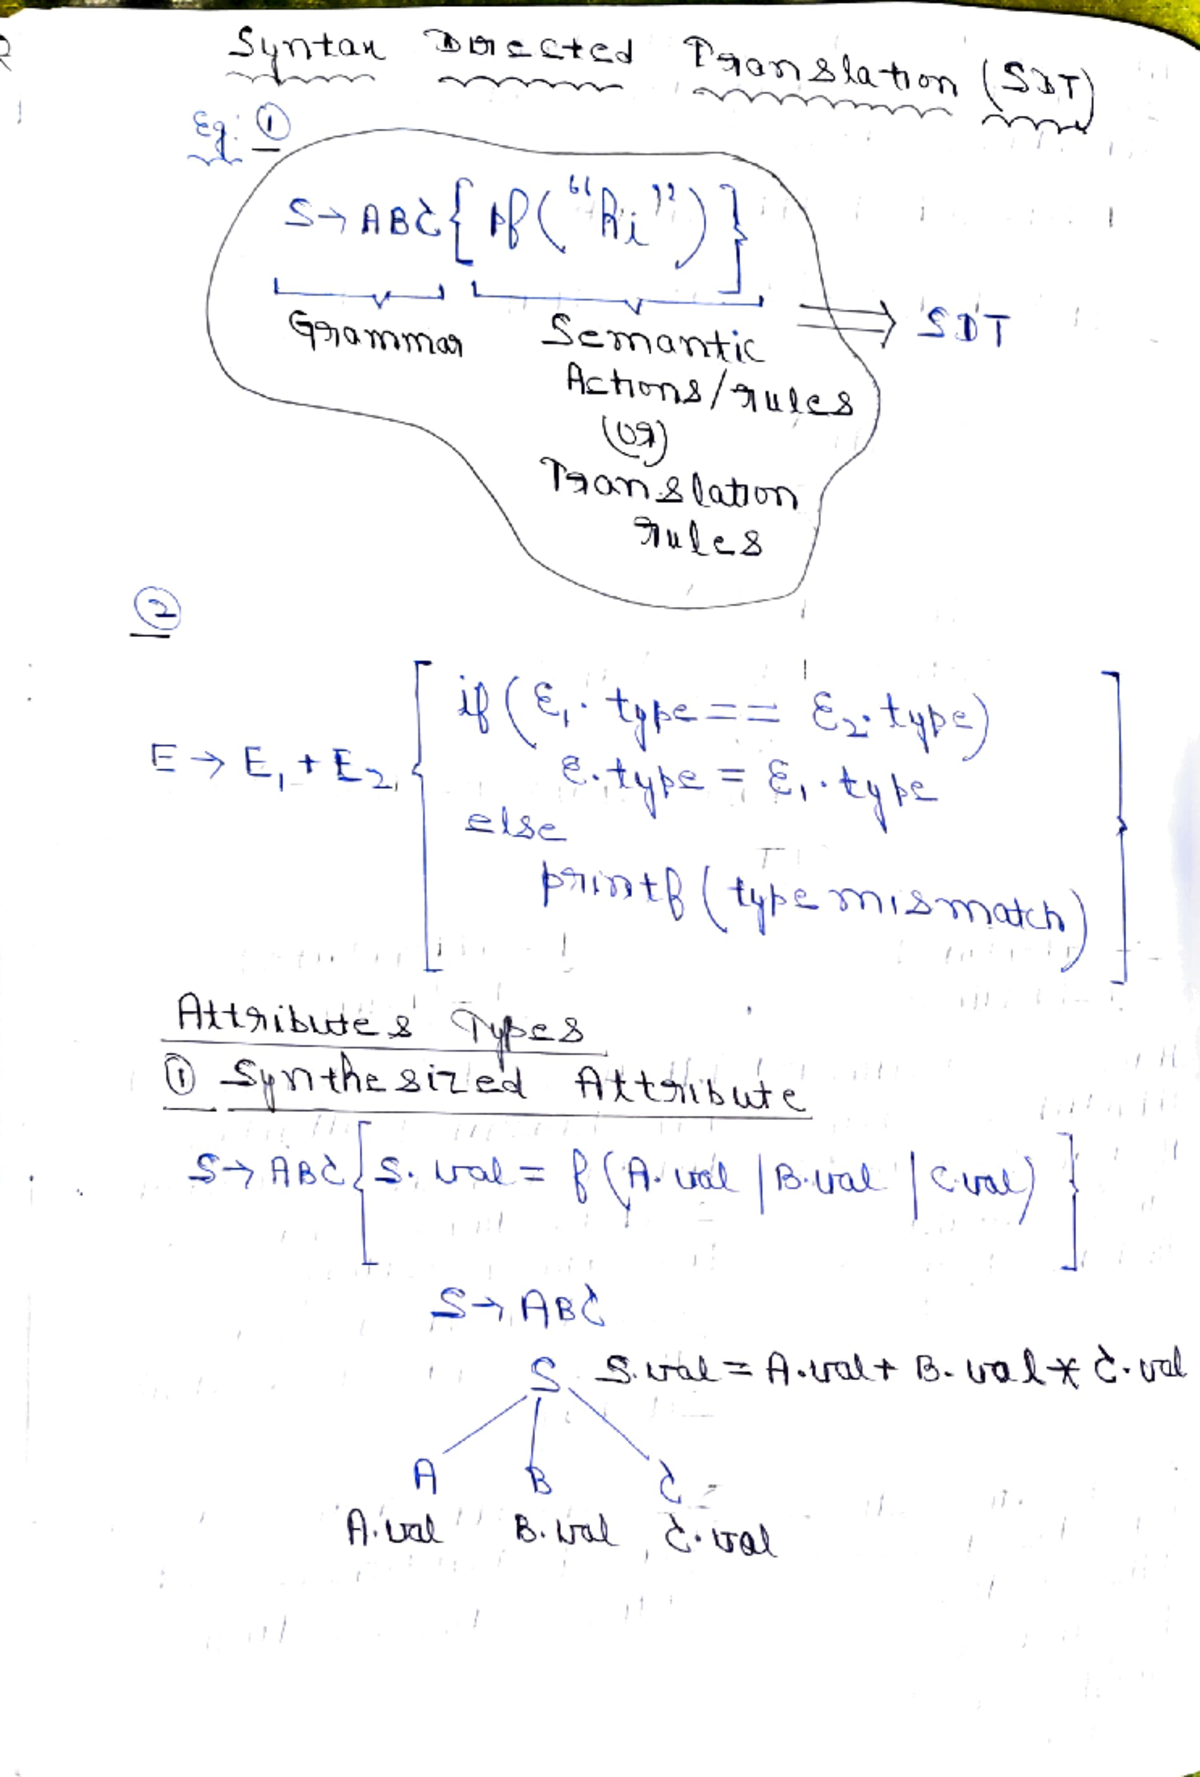 Syntax Directed Translation (SDT)
Eg: ①
S → ABC { pf("hi") }
Grammar Semantic Actions/rules (or) Translation rules
⟹ SDT
②
E → E₁ + E₂
if (E₁.type == E₂.type)
E.type = E₁.type
else
printf(type mismatch)
Attributes Types
① Synthesized Attribute
S → ABC { S.val = f(A.val | B.val | C.val) }
S → ABC
S S.val = A.val + B.val * C.val
A B C
A.val B.val C.val